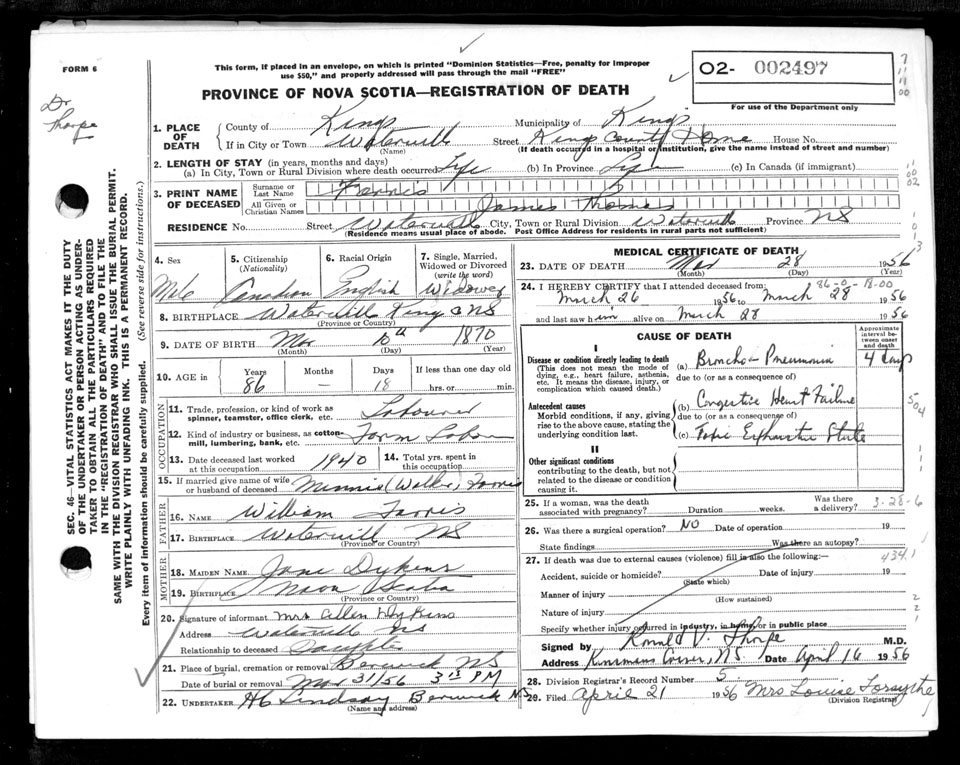 FORM 6
This form, if placed in an envelope, on which is printed "Dominion Statistics—Free, penalty for improper
use $50," and properly addressed will pass through the mail "FREE"
O2- 002497
For use of the Department only
PROVINCE OF NOVA SCOTIA—REGISTRATION OF DEATH
Dr
Thorpe
SEC. 46—VITAL STATISTICS ACT MAKES IT THE DUTY
OF THE UNDERTAKER OR PERSON ACTING AS UNDER-
TAKER TO OBTAIN ALL THE PARTICULARS REQUIRED
IN THE "REGISTRATION OF DEATH" AND TO FILE THE
SAME WITH THE DIVISION REGISTRAR WHO SHALL ISSUE THE BURIAL PERMIT.
WRITE PLAINLY WITH UNFADING INK. THIS IS A PERMANENT RECORD.
Every item of information should be carefully supplied. (See reverse side for instructions.)
1. PLACE OF DEATH
County of Kings Municipality of Kings
If in City or Town Waterville Street Kings County Home House No.
(Name) (If death occurred in a hospital or institution, give the name instead of street and number)
2. LENGTH OF STAY (in years, months and days)
(a) In City, Town or Rural Division where death occurred Life (b) In Province Life (c) In Canada (if immigrant)
3. PRINT NAME OF DECEASED
Surname or Last Name Ferris
All Given or Christian Names James Thomas
RESIDENCE No. Street Waterville City, Town or Rural Division Waterville Province NS
(Residence means usual place of abode. Post Office Address for residents in rural parts not sufficient)
4. Sex Male
5. Citizenship (Nationality) Canadian
6. Racial Origin English
7. Single, Married, Widowed or Divorced (write the word) Widowed
8. BIRTHPLACE Waterville Kings NS
(Province or Country)
9. DATE OF BIRTH Mar 10th 1870
(Month) (Day) (Year)
10. AGE in Years 86 Months — Days 18 If less than one day old hrs. or min.
OCCUPATION
11. Trade, profession, or kind of work as spinner, teamster, office clerk, etc. Labourer
12. Kind of industry or business, as cotton-mill, lumbering, bank, etc. Farm Labour
13. Date deceased last worked at this occupation 1940 14. Total yrs. spent in this occupation
15. If married give name of wife or husband of deceased Minnie (Walker) Farris
FATHER
16. NAME William Farris
17. BIRTHPLACE Waterville NS
(Province or Country)
MOTHER
18. MAIDEN NAME Jane Dykens
19. BIRTHPLACE Nova Scotia
(Province or Country)
20. Signature of informant Mrs Allen Dykens
Address Waterville NS
Relationship to deceased Daughter
21. Place of burial, cremation or removal Berwick NS
Date of burial or removal Mar 31/56 3 PM
22. UNDERTAKER Lindsay Berwick NS
(Name and address)
MEDICAL CERTIFICATE OF DEATH
23. DATE OF DEATH Mar 28 1956
(Month) (Day) (Year)
86-0-18-00
24. I HEREBY CERTIFY that I attended deceased from:
March 26 1956 to March 28 1956
and last saw him alive on March 28 1956
CAUSE OF DEATH
Approximate interval between onset and death
I
Disease or condition directly leading to death
(This does not mean the mode of dying, e.g., heart failure, asthenia, etc. It means the disease, injury, or complication which caused death.)
(a) Broncho-Pneumonia 4 days
due to (or as a consequence of)
Antecedent causes
Morbid conditions, if any, giving rise to the above cause, stating the underlying condition last.
(b) Congestive Heart Failure
due to (or as a consequence of)
(c) Toxic Exhaustive State
II
Other significant conditions
contributing to the death, but not related to the disease or condition causing it.
25. If a woman, was the death associated with pregnancy? Duration weeks. Was there a delivery?
3-28-6
26. Was there a surgical operation? NO Date of operation 19
State findings Was there an autopsy?
27. If death was due to external causes (violence) fill in also the following:—
434.1
Accident, suicide or homicide? Date of injury 19
(State which)
Manner of injury
(How sustained)
Nature of injury
Specify whether injury occurred in industry, in home, or in public place
Signed by Ronald V. Thorpe M.D.
Address Kinsmans Corner, N.S. Date April 16 1956
28. Division Registrar's Record Number 5
29. Filed April 21 1956 Mrs Louise Forsythe
(Division Registrar)